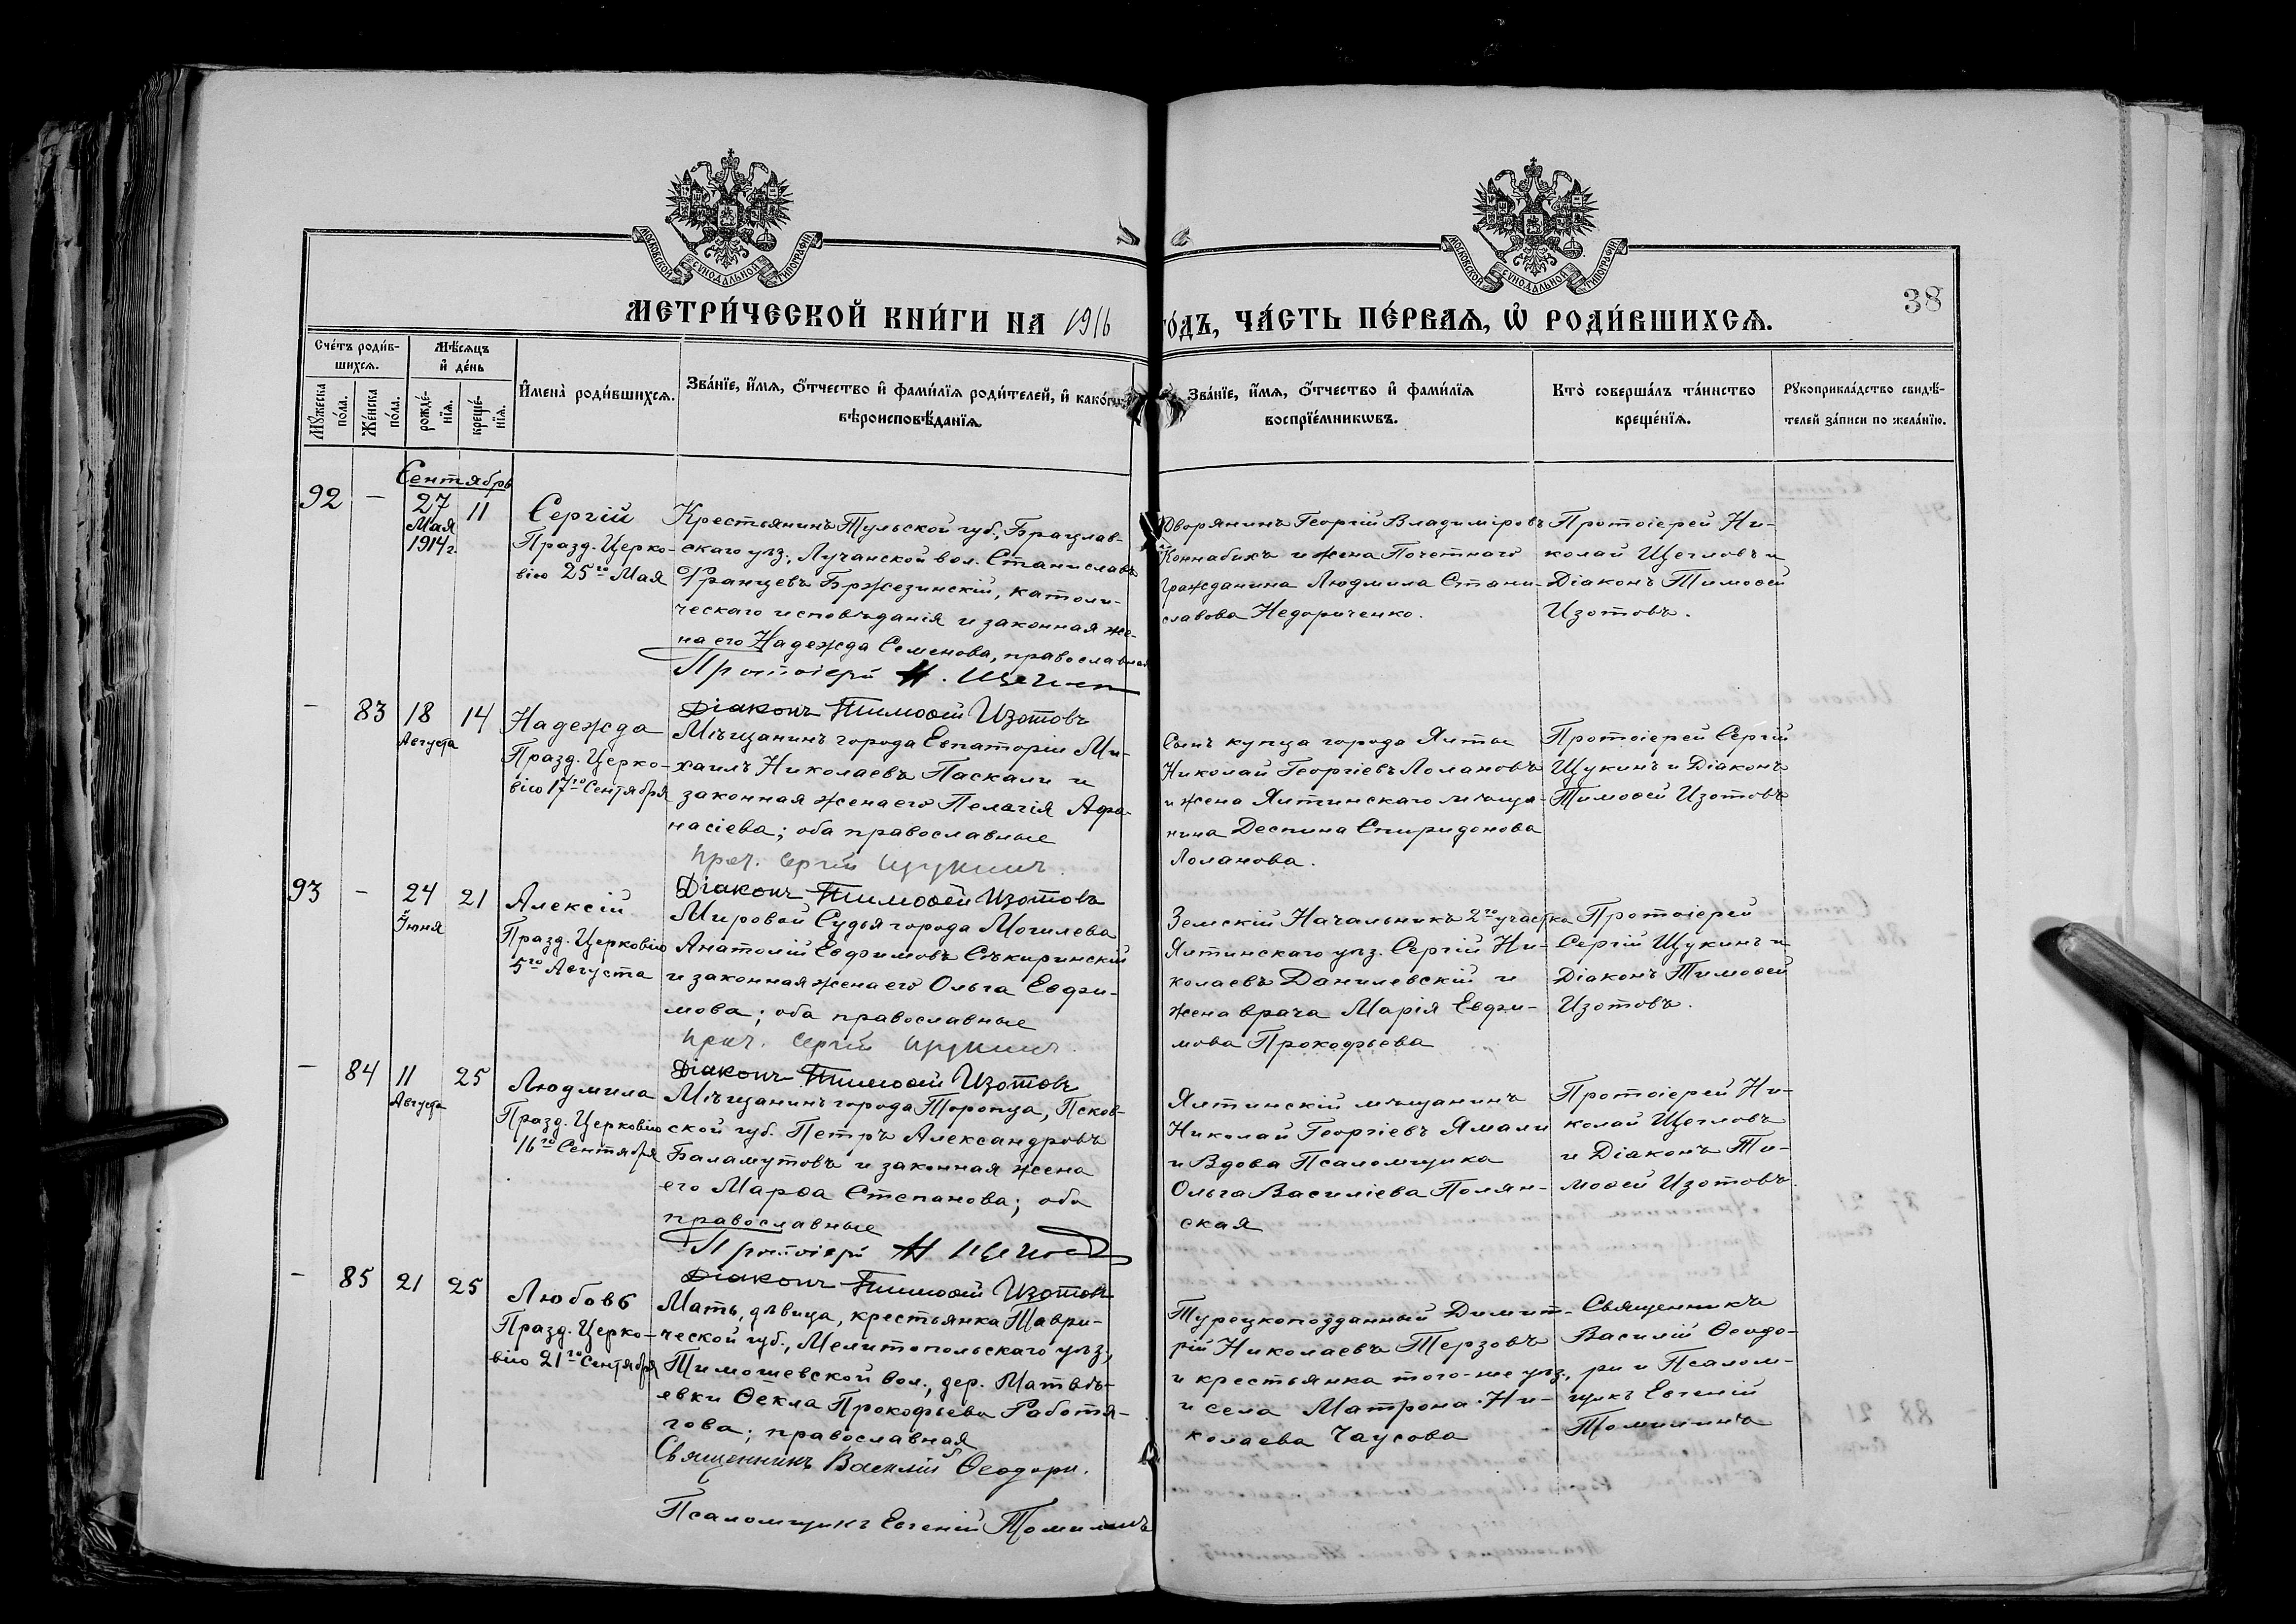 МОСКОВСКОЙ СѴНОДАЛЬНОЙ ТИПОГРАФІИ
МОСКОВСКОЙ СѴНОДАЛЬНОЙ ТИПОГРАФІИ
МЕТРИ́ЧЕСКОЙ КНИ́ГИ НА 1916
ГО́ДЪ, ЧА́СТЬ ПЕ́РВАѦ, Ѡ҆ РОДИ́ВШИХСѦ.
38
Сче́тъ роди́в-
шихсѧ.
Мѣ́сѧцъ
и҆ де́нь
Мꙋ́жеска по́ла.
Же́нска по́ла.
рожде́-нїѧ.
креще́-нїѧ.
И҆мена̀ роди́вшихсѧ.
Зва́нїе, и҆́мѧ, о҆́тчество и҆ фами́лїѧ роди́телей, и҆ како́гѡ
вѣроисповѣ́данїѧ.
Зва́нїе, и҆́мѧ, о҆́тчество и҆ фами́лїѧ
воспрїе́мникѡвъ.
Кто̀ соверша́лъ та́инство
креще́нїѧ.
Рꙋкоприкла́дство свидѣ́-
телей за́писи по жела́нїю.
Сентябрь
92 — 27 11
Мая
1914 г.
Сергій
Празд. Церко-
вію 25го Мая
Крестьянинъ Тульской губ., Брацлав-
скаго уѣз., Лучанской вол. Станиславъ
Францевъ Бржезинскій, католи-
ческаго исповѣданія и законная же-
на его Надежда Семенова, православная
Протоіерей Н. Щегловъ
Діаконъ Тимоѳей Изотовъ
Дворянинъ Георгій Владиміровъ
Коннабихъ и жена Почетнаго
Гражданина Людмила Стани-
славова Недориченко.
Протоіерей Ни-
колай Щегловъ и
Діаконъ Тимоѳей
Изотовъ.
— 83 18 14
Августа
Надежда
Празд. Церко-
вію 17го Сентября
Мѣщанинъ города Евпаторіи Ми-
хаилъ Николаевъ Паскали и
законная жена его Пелагія Афа-
насіева; оба православные
прот. Сергій Щукинъ.
Діаконъ Тимоѳей Изотовъ
Сынъ купца города Ялты
Николай Георгіевъ Полановъ
и жена Ялтинскаго мѣща-
нина Деспина Спиридонова
Поланова.
Протоіерей Сергій
Щукинъ и Діаконъ
Тимоѳей Изотовъ
93 — 24 21
Іюня
Алексій
Празд. Церковію
5го Августа
Мировой Судья города Могилева
Анатолій Евфимовъ Сѣкиринскій
и законная жена его Ольга Евфи-
мова; оба православные
прот. Сергій Щукинъ.
Діаконъ Тимоѳей Изотовъ
Земскій Начальникъ 2го участка
Ялтинскаго уѣз. Сергій Ни-
колаевъ Данилевскій и
жена врача Марія Евфи-
мова Прокофьева
Протоіерей
Сергій Щукинъ и
Діаконъ Тимоѳей
Изотовъ.
— 84 11 25
Августа
Людмила
Празд. Церковію
16го Сентября
Мѣщанинъ города Торопца, Псков-
ской губ. Петръ Александровъ
Баламутовъ и законная жена
его Марѳа Степанова; оба
православные
Протоіерей Н Щегловъ
Діаконъ Тимоѳей Изотовъ
Ялтинскій мѣщанинъ
Николай Георгіевъ Ямали
и Вдова Псаломщика
Ольга Василіева Полян-
ская
Протоіерей Ни-
колай Щегловъ
и Діаконъ Ти-
моѳей Изотовъ.
— 85 21 25
Любовь
Празд. Церко-
вію 21го Сентября
Мать, дѣвица, крестьянка Таври-
ческой губ., Мелитопольскаго уѣз.,
Тимошевской вол., дер. Матвѣ-
евки Ѳекла Прокофьева Работя-
гова; православная
Священникъ Василій Ѳеодори.
Псаломщикъ Евгеній Томилинъ
Турецкоподданный Димит-
рій Николаевъ Терзовъ
и крестьянка того-же уѣз.,
и села Матрона Ни-
колаева Чаусова
Священникъ
Василій Ѳеодо-
ри и Псалом-
щикъ Евгеній
Томилинъ